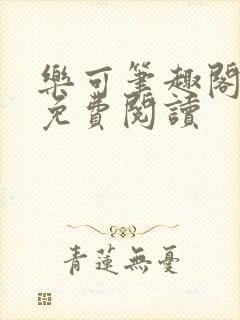 樂可筆趣閣
免費閱讀
青蓮無憂